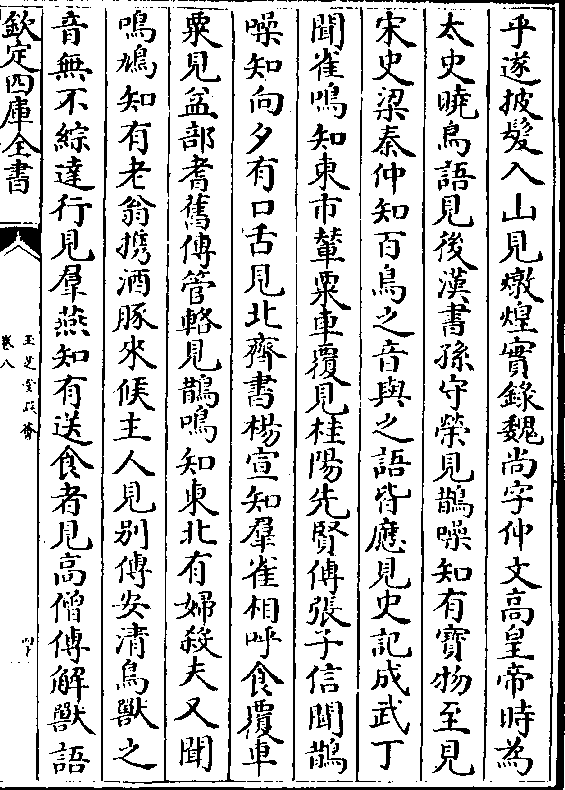 乎遂披髮入山見燉煌實錄魏尚字仲文高皇帝時為
太史曉鳥語見後漢書孫守榮見鵲噪知有寳物至見
宋史梁秦仲知百鳥之音與之語皆應見史記成武丁
聞雀鳴知東市輦粟車覆見桂陽先賢傳張子信聞鵲
噪知向夕有口舌見北齊書楊宣知羣雀相呼食覆車
粟見益部耆舊傳管輅見鵲鳴知東北有婦殺夫又聞
鳴鳩知有老翁攜酒豚來候主人見别傳安清鳥獸之
音無不綜達行見羣燕知有送食者見高僧傳解獸語
欽定四庫全書
玉芝堂談薈
卷八